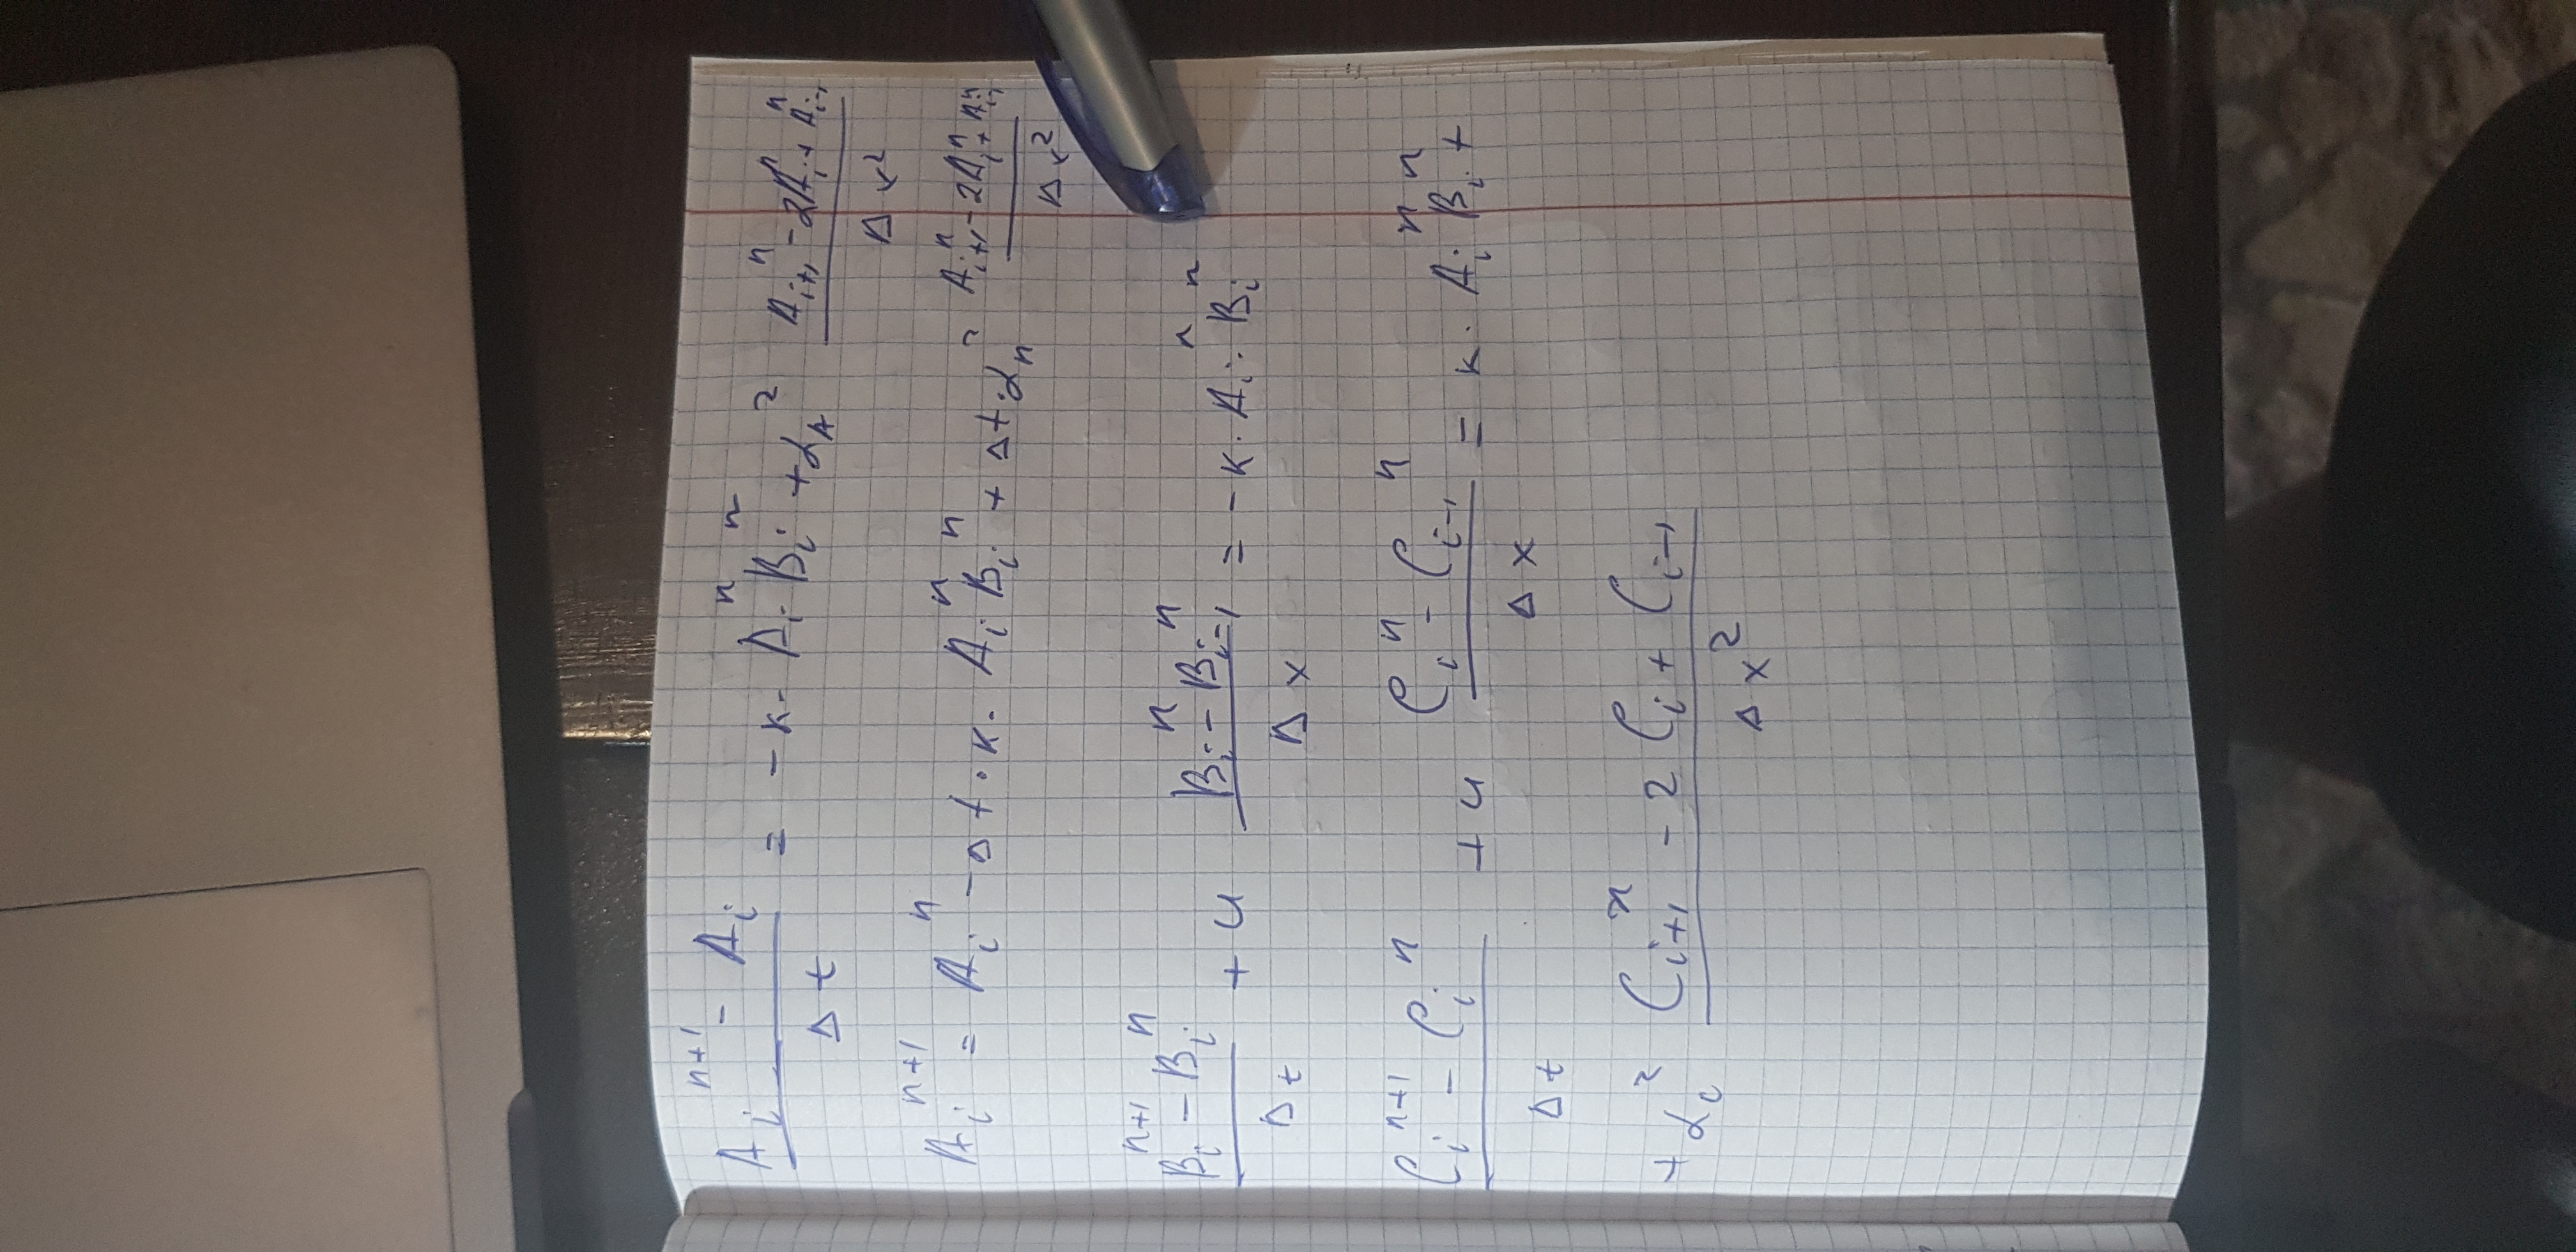 (A_i^{n+1} - A_i) / Δt = -k · A_i^n B_i^n + α_A^2 (A_{i+1}^n - 2A_i^n + A_{i-1}^n) / Δx^2
A_i^{n+1} = A_i^n - Δt · k · A_i^n B_i^n + Δt · α_n^2 (A_{i+1}^n - 2A_i^n + A_{i-1}^n) / Δx^2
(B_i^{n+1} - B_i^n) / Δt + u (B_i^n - B_{i-1}^n) / Δx = -k · A_i^n · B_i^n
(C_i^{n+1} - C_i^n) / Δt + u (C_i^n - C_{i-1}^n) / Δx = k · A_i^n B_i^n +
+ α_c^2 (C_{i+1}^n - 2C_i + C_{i-1}) / Δx^2